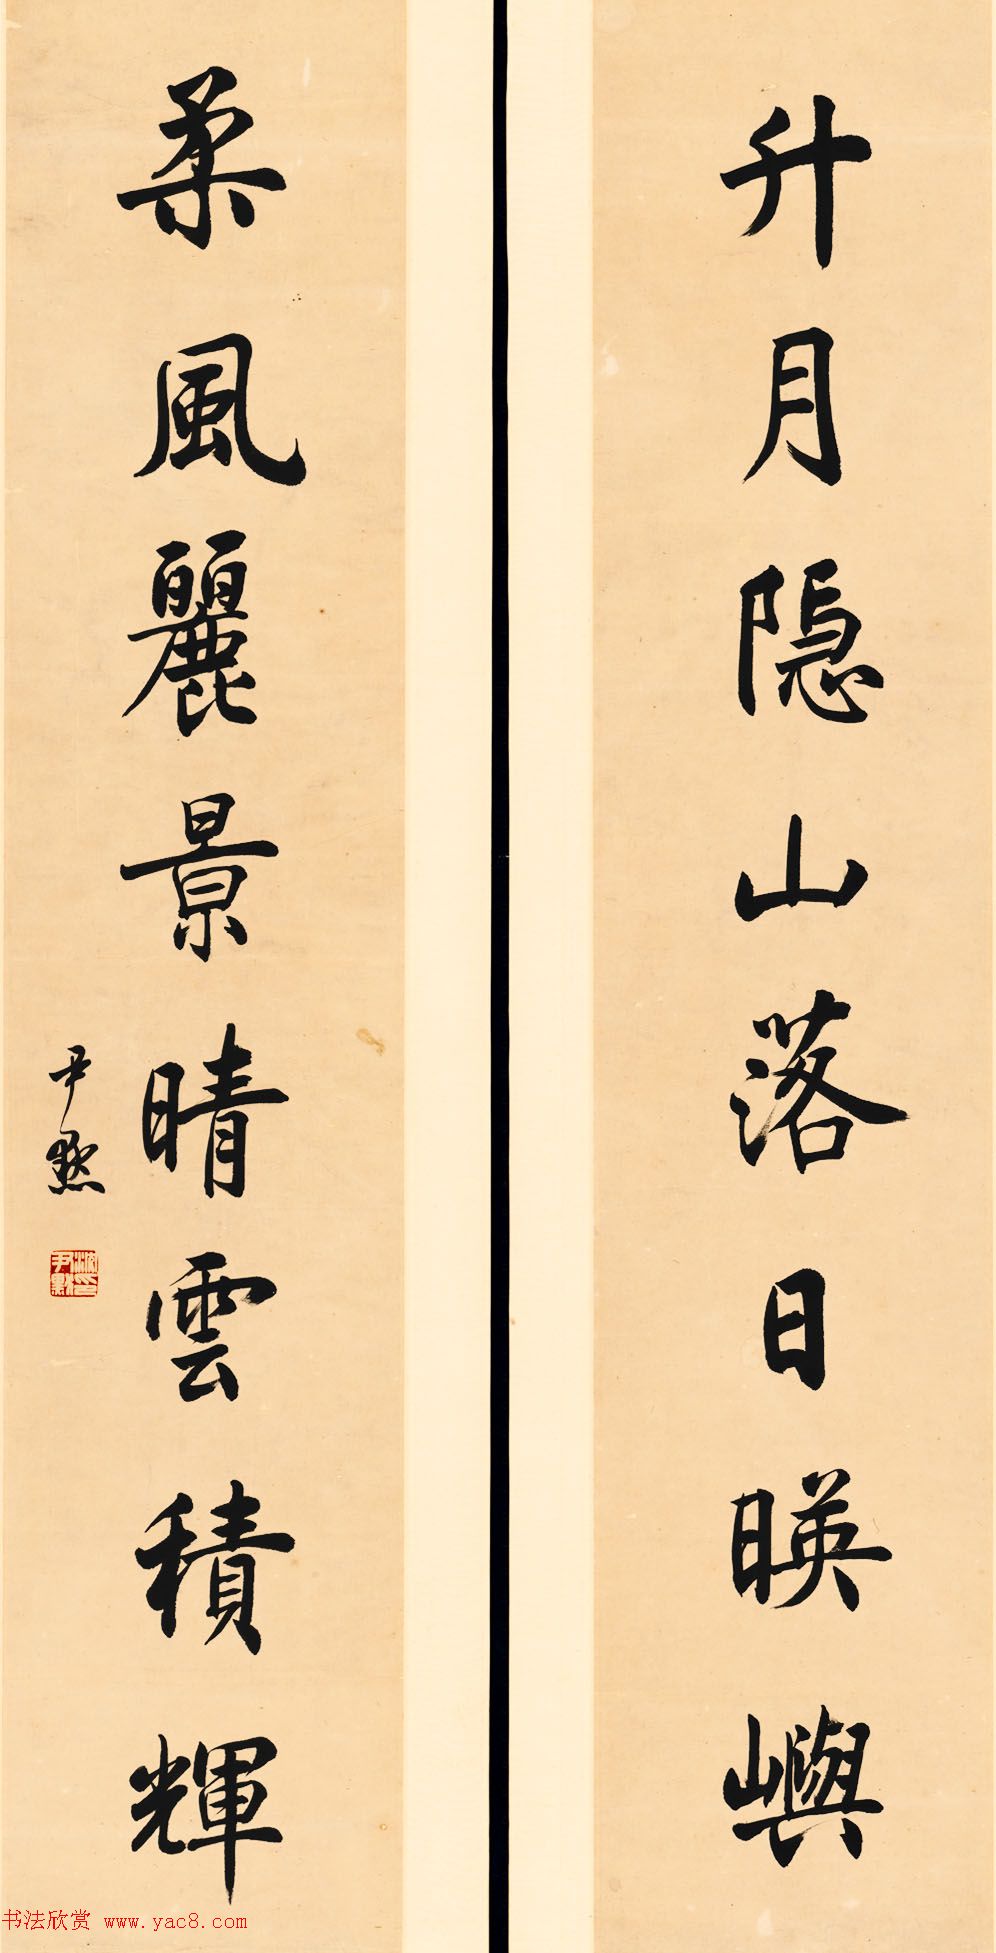 升月隐山落日暎嶼
柔風麗景晴雲積輝
尹默
书法欣赏 www.yac8.com